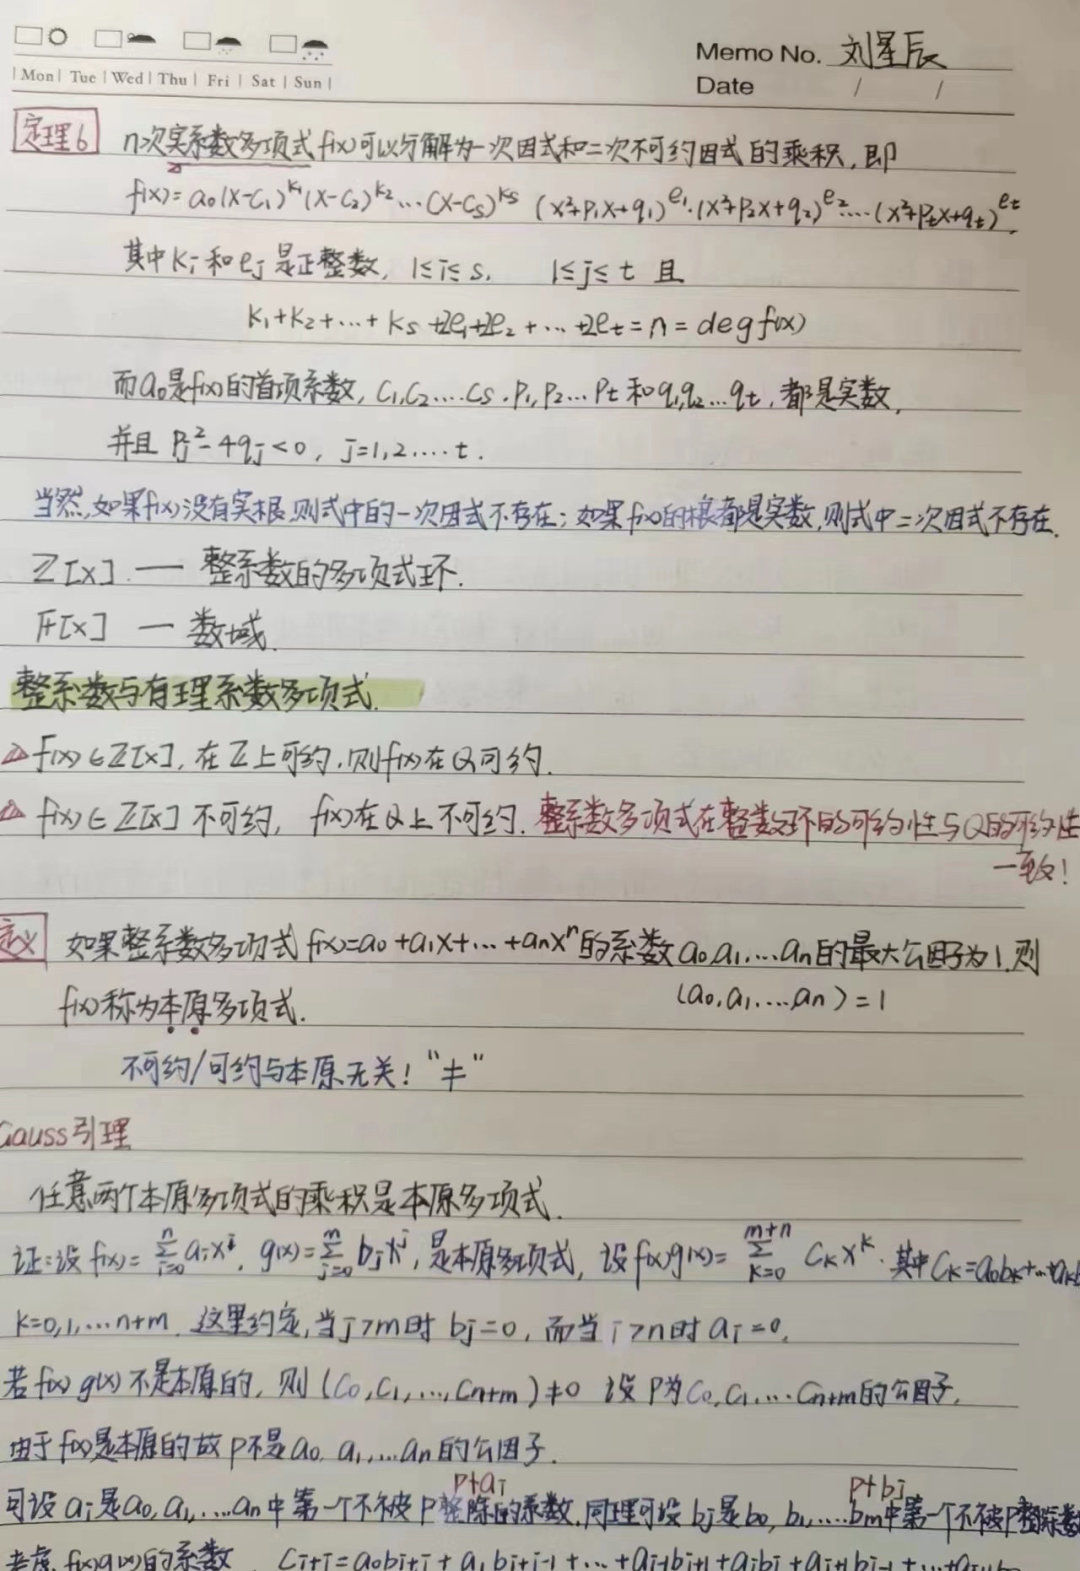 Memo No. 刘星辰
Mon Tue Wed Thu Fri Sat Sun
Date / /
定理6 n次实系数多项式f(x)可以分解为一次因式和二次不可约因式的乘积,即
f(x)=a₀(x-c₁)^k₁(x-c₂)^k₂…(x-cₛ)^kₛ (x²+p₁x+q₁)^e₁·(x²+p₂x+q₂)^e₂…(x²+pₜx+qₜ)^eₜ,
其中kᵢ和eⱼ是正整数, 1≤i≤s, 1≤j≤t 且
k₁+k₂+…+kₛ+2e₁+2e₂+…+2eₜ=n=deg f(x)
而a₀是f(x)的首项系数, c₁,c₂…cₛ,p₁,p₂…pₜ和q₁,q₂…qₜ,都是实数,
并且 pⱼ²-4qⱼ<0, j=1,2…t.
当然,如果f(x)没有实根,则式中的一次因式不存在;如果f(x)的根都是实数,则式中二次因式不存在.
Z[x] — 整系数的多项式环.
F[x] — 数域.
整系数与有理系数多项式.
△ f(x)∈Z[x],在Z上可约,则f(x)在Q可约.
△ f(x)∈Z[x]不可约, f(x)在Q上不可约. 整系数多项式在整数环的可约性与Q的可约性
一致!
定义 如果整系数多项式f(x)=a₀+a₁x+…+aₙxⁿ的系数a₀,a₁,…aₙ的最大公因子为1,则
f(x)称为本原多项式. (a₀,a₁,…,aₙ)=1
不可约/可约与本原无关! "≠"
Gauss引理
任意两个本原多项式的乘积是本原多项式.
证:设f(x)=∑ⁿᵢ₌₀aᵢxⁱ, g(x)=∑ᵐⱼ₌₀bⱼxʲ,是本原多项式, 设f(x)g(x)=∑ᵐ⁺ⁿₖ₌₀ cₖxᵏ.其中cₖ=a₀bₖ+…+aₖb
k=0,1,…n+m. 这里约定,当j>m时 bⱼ=0, 而当i>n时aᵢ=0,
若f(x)g(x)不是本原的, 则(c₀,c₁,…,cₙ₊ₘ)≠0 设p为c₀,c₁,…cₙ₊ₘ的公因子,
由于f(x)是本原的故p不是a₀,a₁,…aₙ的公因子.
p∤aᵢ p∤bⱼ
可设aᵢ是a₀,a₁,…aₙ中第一个不被p整除的系数,同理可设bⱼ是b₀,b₁,…bₘ中第一个不被p整除数
考虑f(x)g(x)的系数 cᵢ₊ⱼ=a₀bᵢ₊ⱼ+a₁bᵢ₊ⱼ₋₁+…+aᵢ₋₁bⱼ₊₁+aᵢbⱼ+aᵢ₊₁bⱼ₋₁+…+aᵢ₊ⱼb₀